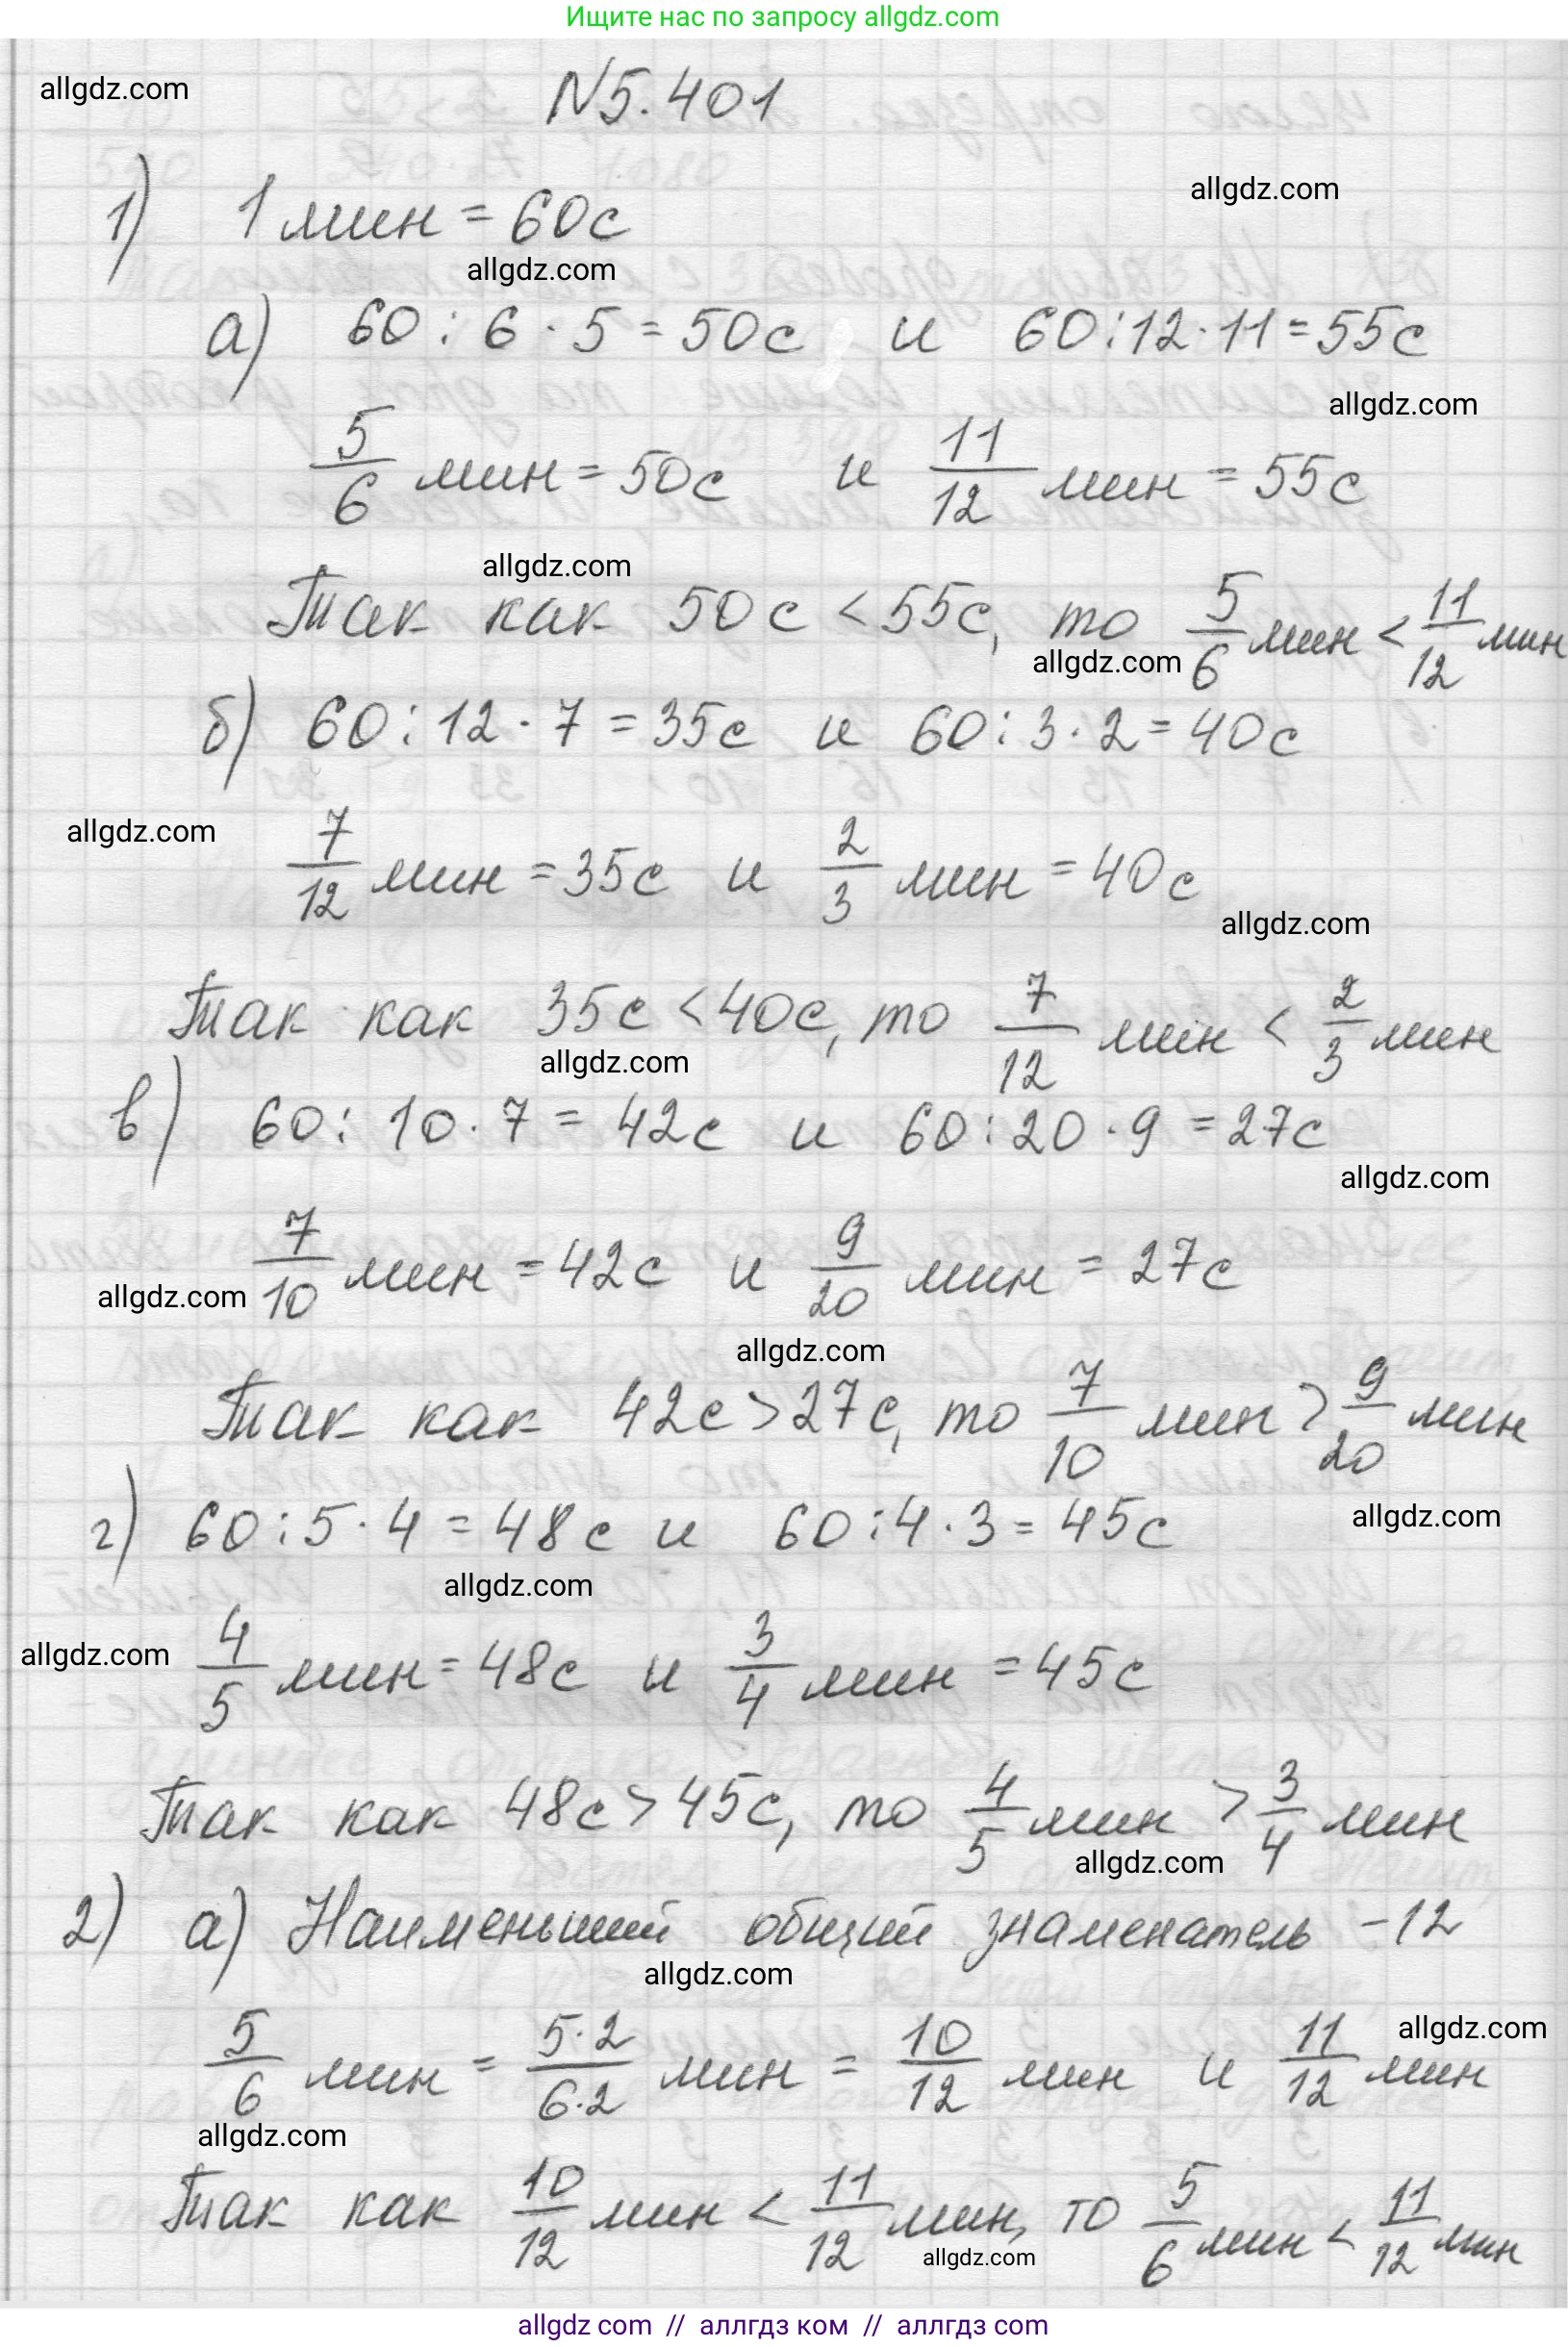 Ищите нас по запросу allgdz.com
allgdz.com
N5.401
allgdz.com
1) 1 мин = 60с
allgdz.com
а) 60 : 6 · 5 = 50с и 60 : 12 · 11 = 55с
allgdz.com
5/6 мин = 50с и 11/12 мин = 55с
allgdz.com
Так как 50с < 55с, то 5/6 мин < 11/12 мин
allgdz.com
б) 60 : 12 · 7 = 35с и 60 : 3 · 2 = 40с
allgdz.com
7/12 мин = 35с и 2/3 мин = 40с
allgdz.com
Так как 35с < 40с, то 7/12 мин < 2/3 мин
allgdz.com
в) 60 : 10 · 7 = 42с и 60 : 20 · 9 = 27с
allgdz.com
7/10 мин = 42с и 9/20 мин = 27с
allgdz.com
allgdz.com
Так как 42с > 27с, то 7/10 мин > 9/20 мин
allgdz.com
г) 60 : 5 · 4 = 48с и 60 : 4 · 3 = 45с
allgdz.com
allgdz.com
4/5 мин = 48с и 3/4 мин = 45с
Так как 48с > 45с, то 4/5 мин > 3/4 мин
allgdz.com
2) а) Наименьший общий знаменатель - 12
allgdz.com
allgdz.com
5/6 мин = 5·2/6·2 мин = 10/12 мин и 11/12 мин
allgdz.com
Так как 10/12 мин < 11/12 мин, то 5/6 мин < 11/12 мин
allgdz.com
allgdz com // аллгдз ком // аллгдз com